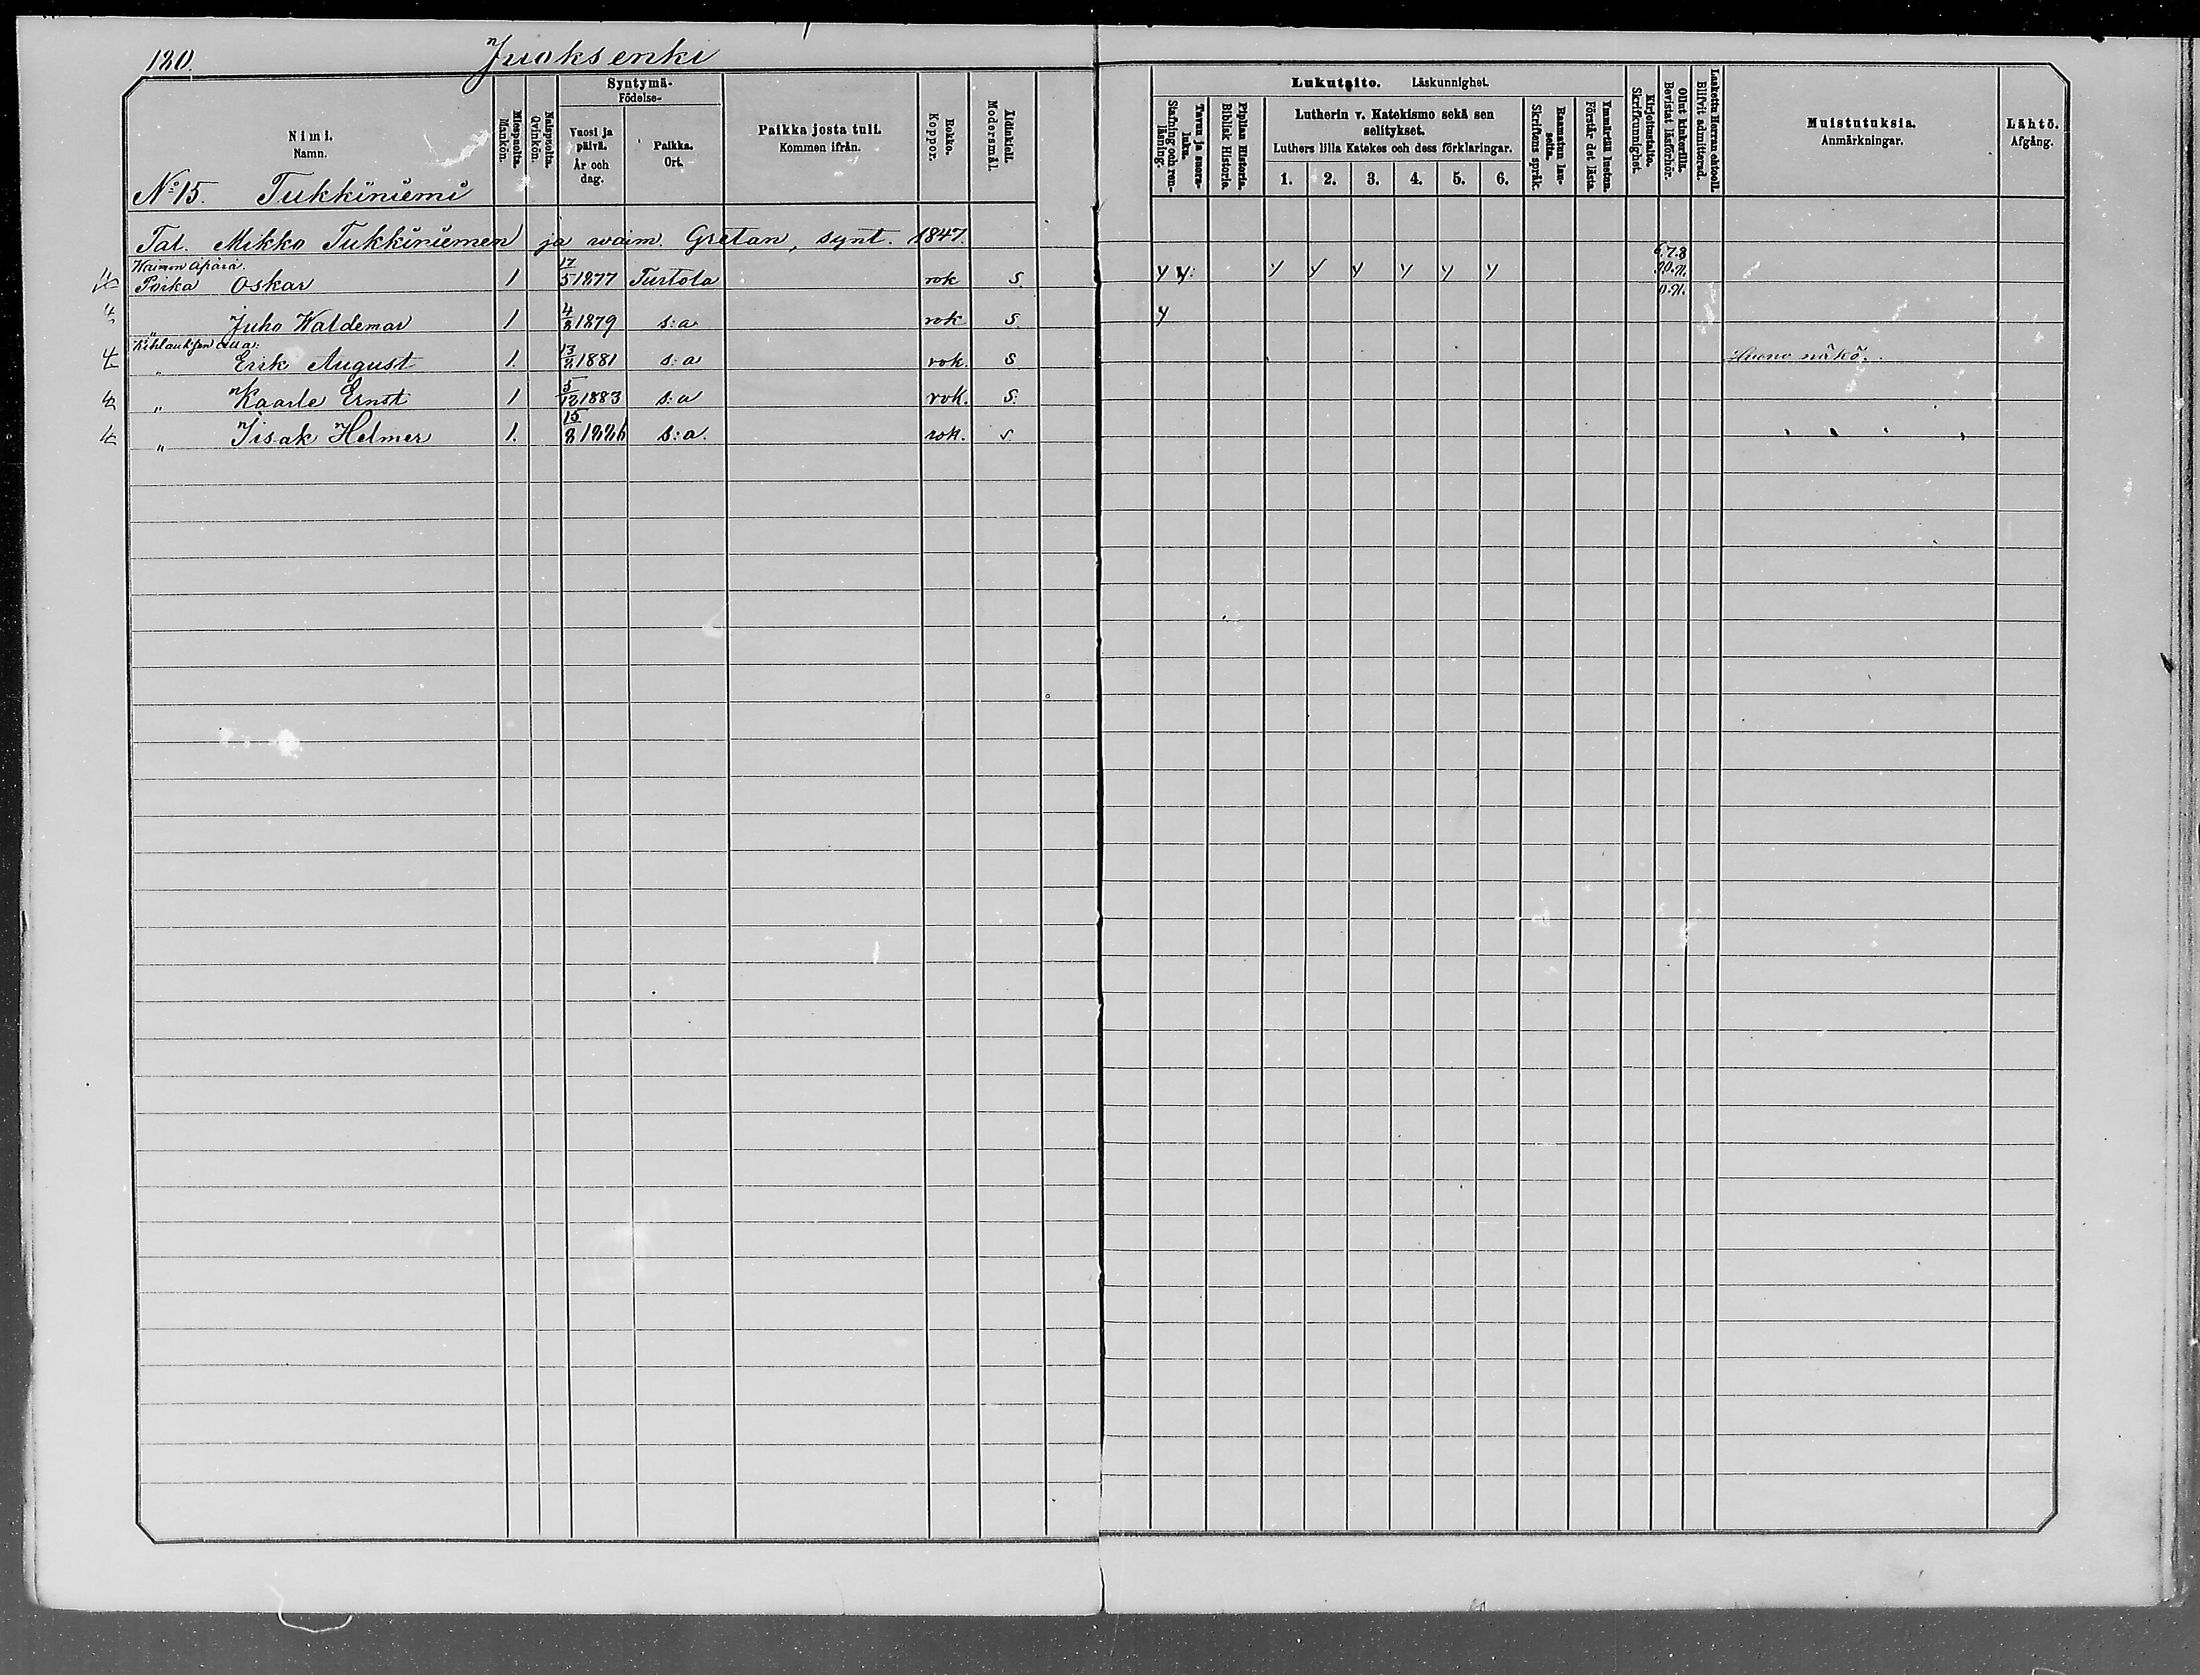 180.
Juoksenki
Nimi.
Namn.
Miespuolta.
Mankön.
Naispuolta.
Qvinkön.
Syntymä-
Födelse-
Vuosi ja
päivä.
År och
dag.
Paikka.
Ort.
Paikka josta tuli.
Kommen ifrån.
Rokko.
Koppor.
Äidinkieli.
Modersmål.
Lukutaito. Läskunnighet.
Tavuu ja suora-
luku.
Stafning och ren-
läsning.
Piplian Historia.
Biblisk Historie.
Lutherin v. Katekismo sekä sen
selitykset.
Luthers lilla Katekes och dess förklaringar.
1. 2. 3. 4. 5. 6.
Raamatun lau-
seita.
Skriftens språk.
Ymmärtää luetun.
Förstår det lästa.
Kirjoitustaito.
Skrifkunnighet.
Ollut kinkerillä.
Bevistat läsförhör.
Laskettu Herran ehtool.
Blifvit admitterad.
Muistutuksia.
Anmärkningar.
Lähtö.
Afgång.
No 15. Tukkiniemi
Tal. Mikko Tukkiniemen ja waim. Gretan, synt. 1847.
Waimon äpärä.
Poika Oskar 1 17/5 1877 Turtola rok S. y y. y y y y y y 6.7.8
90.91.
" Juho Waldemar 1 4/8 1879 s:a rok S y
" Erik August 1. 13/2 1881 s:a rok. S näkö.
" Kaarle Ernst 1 5/12 1883 s:a rok. S.
" Iisak Helmer 1. 15/8 1886 s:a. rok. s